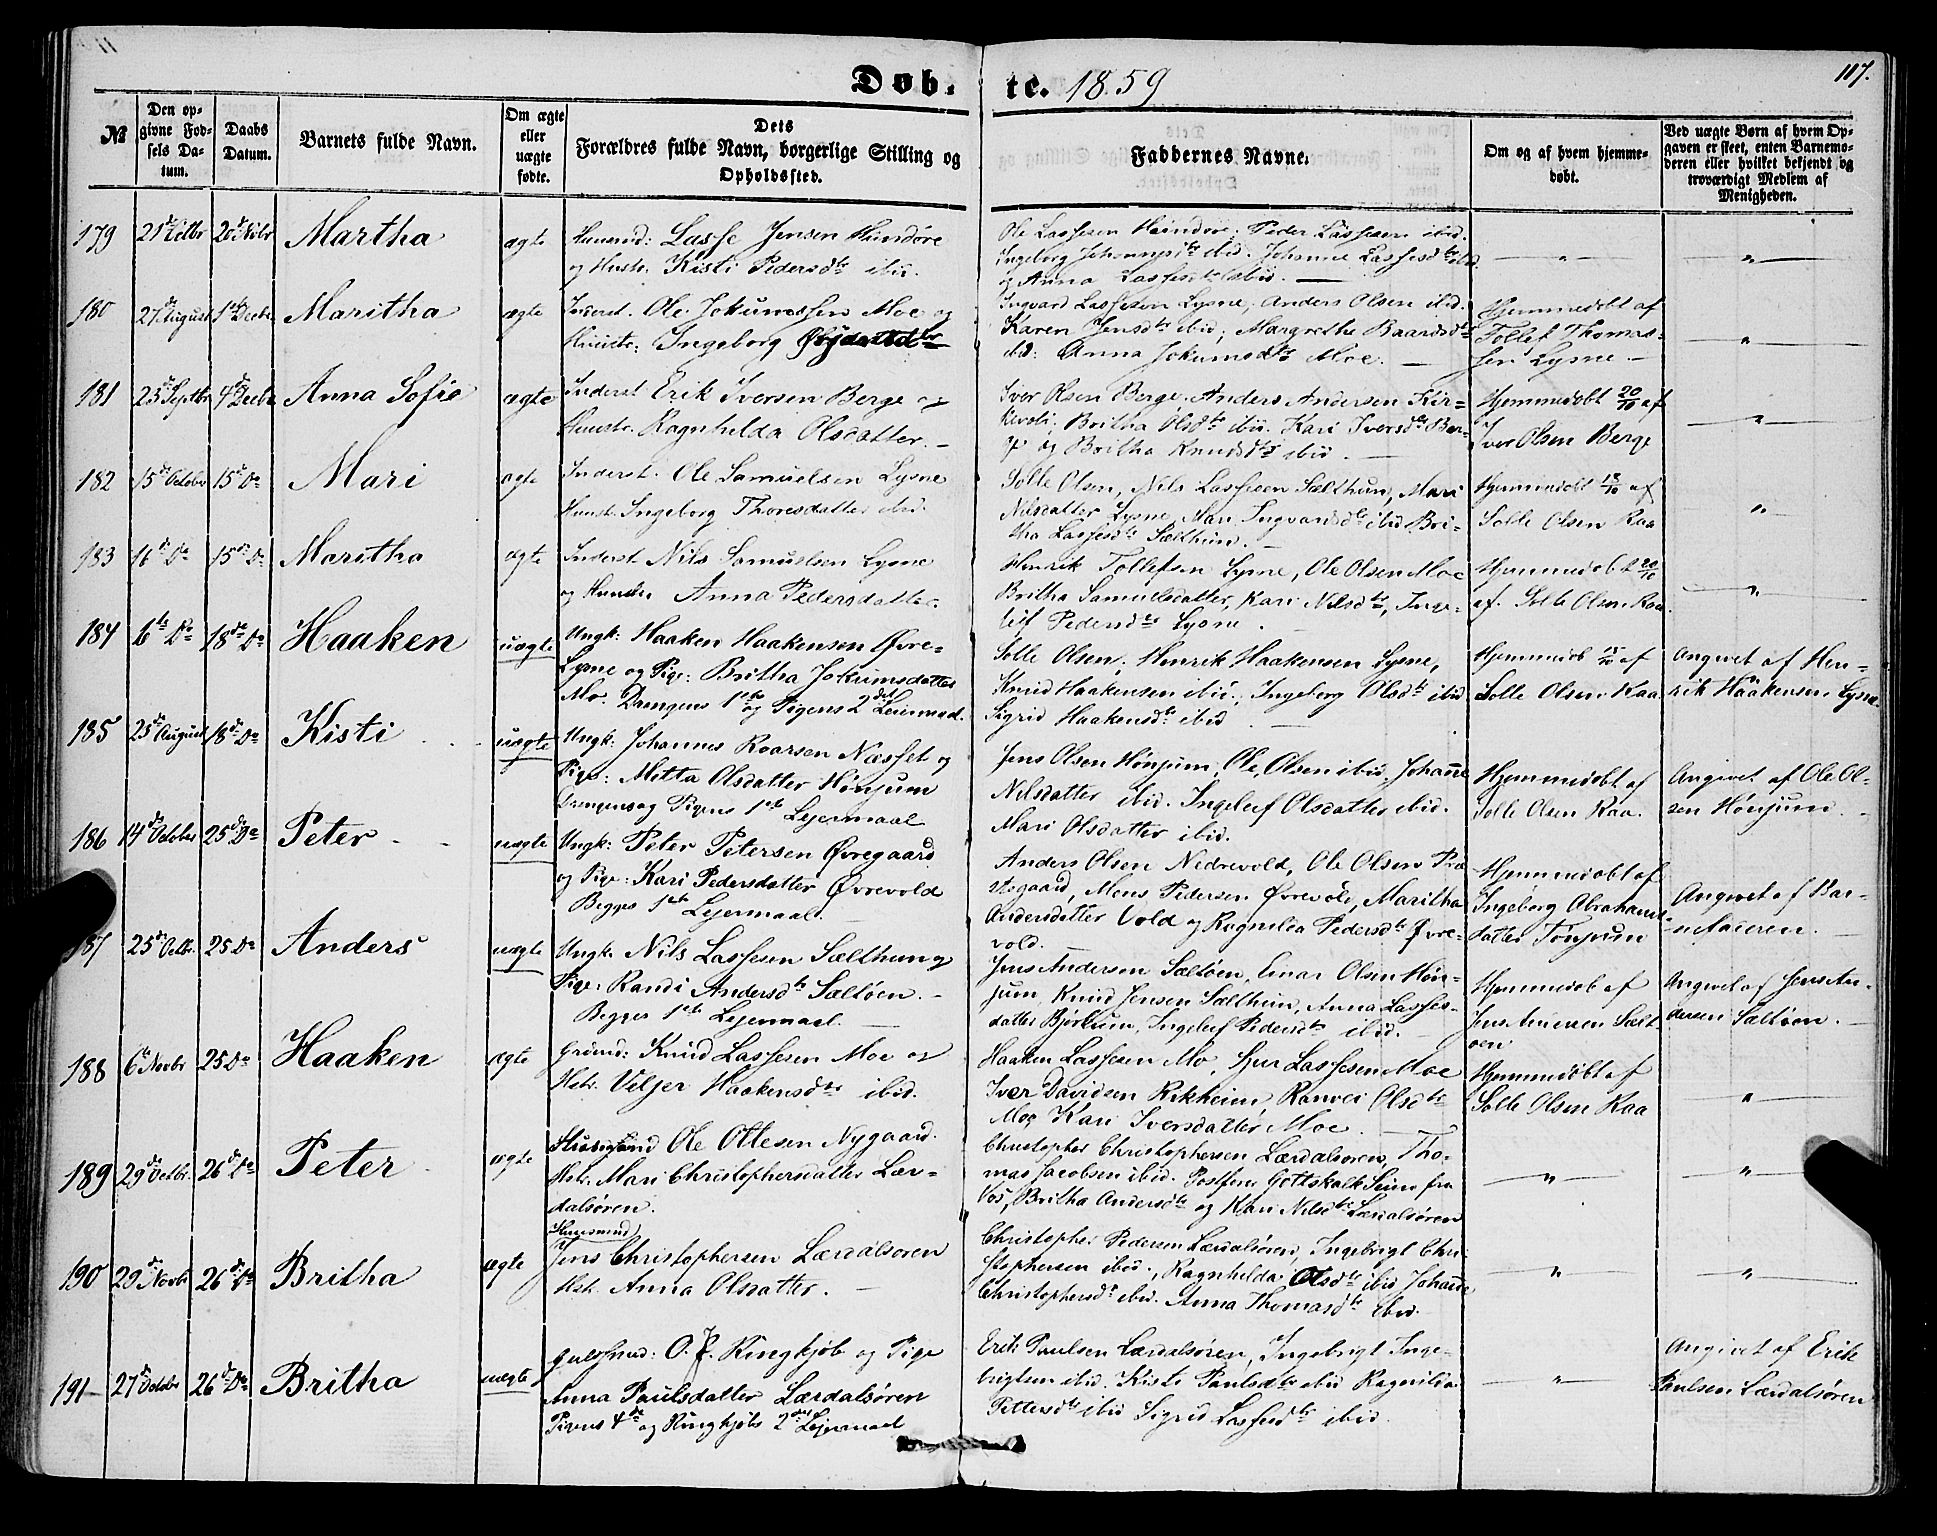 Døb- te. 1859
117.
№ | Den op-givne Fød-sels Da-tum. | Daabs Datum. | Barnets fulde Navn. | Om ægte eller uægte fødte. | Dets Forældres fulde Navn, borgerlige Stilling og Opholdssted. | Faddernes Navne. | Om og af hvem hjemme-døbt. | Ved uægte Børn af hvem Op-gaven er skeet, enten Barnemo-deren eller hvilket bekjendt og troværdigt Medlem af Menigheden.
179 21de Octbr 20de Novbr Martha ægte Huusmd: Lasse Jensen Hunderi
og Hustr. Kisti Pedersdtr ibid.
Ole Lassesen Hunderi; Peder Lassesen ibid.
Ingeborg Johannesdtr ibid. Johanne Lassesdtr ibid
og Anna Lassesdtr ibid.
180 27de August 1ste Decbr Maritha ægte Inderst. Ole Jokumssen Moe og
Huustr: Ingeborg
Ingvard Lassesen Lysne; Anders Olsen ibid.
Karen Jensdtr ibid; Margrethe Baardsdtr
ibid: Anna Jokumsdtr Moe.
Hjemmedøbt af
Tollef Thomas-
sen Lysne
181 23de Septbr 4de Decbr Anna Sofie ægte Inderst Erik Iversen Berge og
Huustr. Ragnhilda Olsdatter.
Iver Olsen Berge. Anders Andersen Kir-
kevoli. Britha Olsdtr ibid. Kari Iversdtr Ber-
ge og Britha Knudsdtr ibid.
Hjemmedøbt 20/10 af
Iver Olsen Berge
182 15de October 15de Do Mari ægte Inderst. Ole Samuelsen Lysne
Huustr. Ingeborg Thoresdatter ibid.
Solle Olsen, Nils Lassesen Sælthun, Mari
Nilsdatter Lysne, Mari Ingvardsdtr ibid Bri-
tha Lassesdtr Sælthun.
Hjemmedøbt af
Solle Olsen Raa
183 16de Do 15de Do Maritha ægte Inderst Nils Samuelsen Lysne
og Huustr Anna Pedersdatter.
Henrik Tollefsen Lysne, Ole Olsen Moe
Britha Samuelsdatter, Kari Nilsdtr, Inge-
leif Pedersdtr Lysne.
Hjemmedøbt 20/10
af. Solle Olsen Raa.
184 6te Do 18de Do Haaken uægte Ungk: Haaken Haakensen Øvre-
Lysne og Pige: Britha Jokumsdatter
Mo. Drengens 1ste og Pigens 2det Leiermaal.
Solle Olsen, Henrik Haakensen Lysne,
Knud Haakensen ibid, Ingeborg Olsdtr ibid
Sigrid Haakensdtr ibid
Hjemmedøb af
Solle Olsen Raa
Angivet af Hen-
rik Haakensen Lysne.
185 25de August 18de Do Kisti uægte Ungk: Johannes Roarsen Næsset og
Pige: Mitta Olsdatter Hønjum
Drengens og Pigens 1ste Lejermaal
Jens Olsen Hønjum, Ole Olsen ibid, Johanne
Nilsdatter ibid. Ingeleif Olsdatter ibid.
Mari Olsdatter ibid.
Hjemmedøbt af
Solle Olsen Raa.
Angivet af Ole Ol-
sen Hønjum.
186 14de October 25de Do Peter uægte Ungk: Peter Petersen Øvregaard
og Pige: Kari Pedersdatter Øvrevold
Begges 1ste Lejermaal.
Anders Olsen Nedrevold, Ole Olsen Præ-
stegaard, Mons Pedersen Øvrevold, Maritha
Andersdatter Vold og Ragnilda Pedersdtr Øvre-
vold.
Hjemmedøbt af
Ingeborg Abrahams-
datter Tønjum
Angivet af Bar-
nefaderen.
187 25de Octbr. 25 Do Anders uægte Ungk. Nils Lassesen Sælthun og
Pige: Randi Andersdtr Sæltøen.
Begges 1ste Lejermaal.
Jens Andersen Sæltøen, Einar Olsen Høn-
jum, Knud Jensen Sælthun, Anna Lasses-
datter Bjørkum, Ingeleif Pedersdtr ibid.
Hjemmedøb af
Jens Andersen Sælt-
øen
Angivet af Jens An-
dersen Sæltøen.
188 6te Novbr 25 Do Haaken ægte Grdmd: Knud Lassesen Moe og
Hstr. Veljer Haakensdtr ibid.
Haaken Lassesen Mo, Sjur Lassesen Moe
Iver Davidsen Rikheim Ranvei Olsdtr
Moe Kari Iversdatter Moe.
Hjemmedøbt af
Solle Olsen Raa
189 29de Octbr. 26de Do Peter ægte Huusmand Ole Ottesen Nygaard.
Hstr. Mari Christophersdatter Lær-
dalsøren.
Christopher Christophersen Lærdalsøren, Tho-
mas Jacobsen ibid. Postfører Gottskalk Seim fra
Vos, Britha Andersdtr og Kari Nilsdtr Lærdalsøren
190 29de Novbr 26de Do Britha ægte Huusmand
Jens Christophersen Lærdalsøren
Hstr. Anna Olsdatter.
Christopher Pedersen Lærdalsøren, Ingebrigt Chri-
stophersen ibid., Ragnhilda Olsdtr ibid Johanne
Christophersdtr ibid. Anna Thomasdtr ibid.
191 27de Octobr 26de Do Britha uægte Guldsmed: O. P. Ringkjøb og Pige
Anna Paulsdatter Lærdalsøren
Pigens 4de og Ringkjøbs 2det Lejermaal
Erik Paulsen Lærdalsøren, Ingebrigt Inge-
brigtsen ibid. Kisti Paulsdtr ibid Ragnilda
Pittersdtr ibid Sigrid Lassesdtr ibid
Angivet af Erik
Paulsen Lærdalsøren